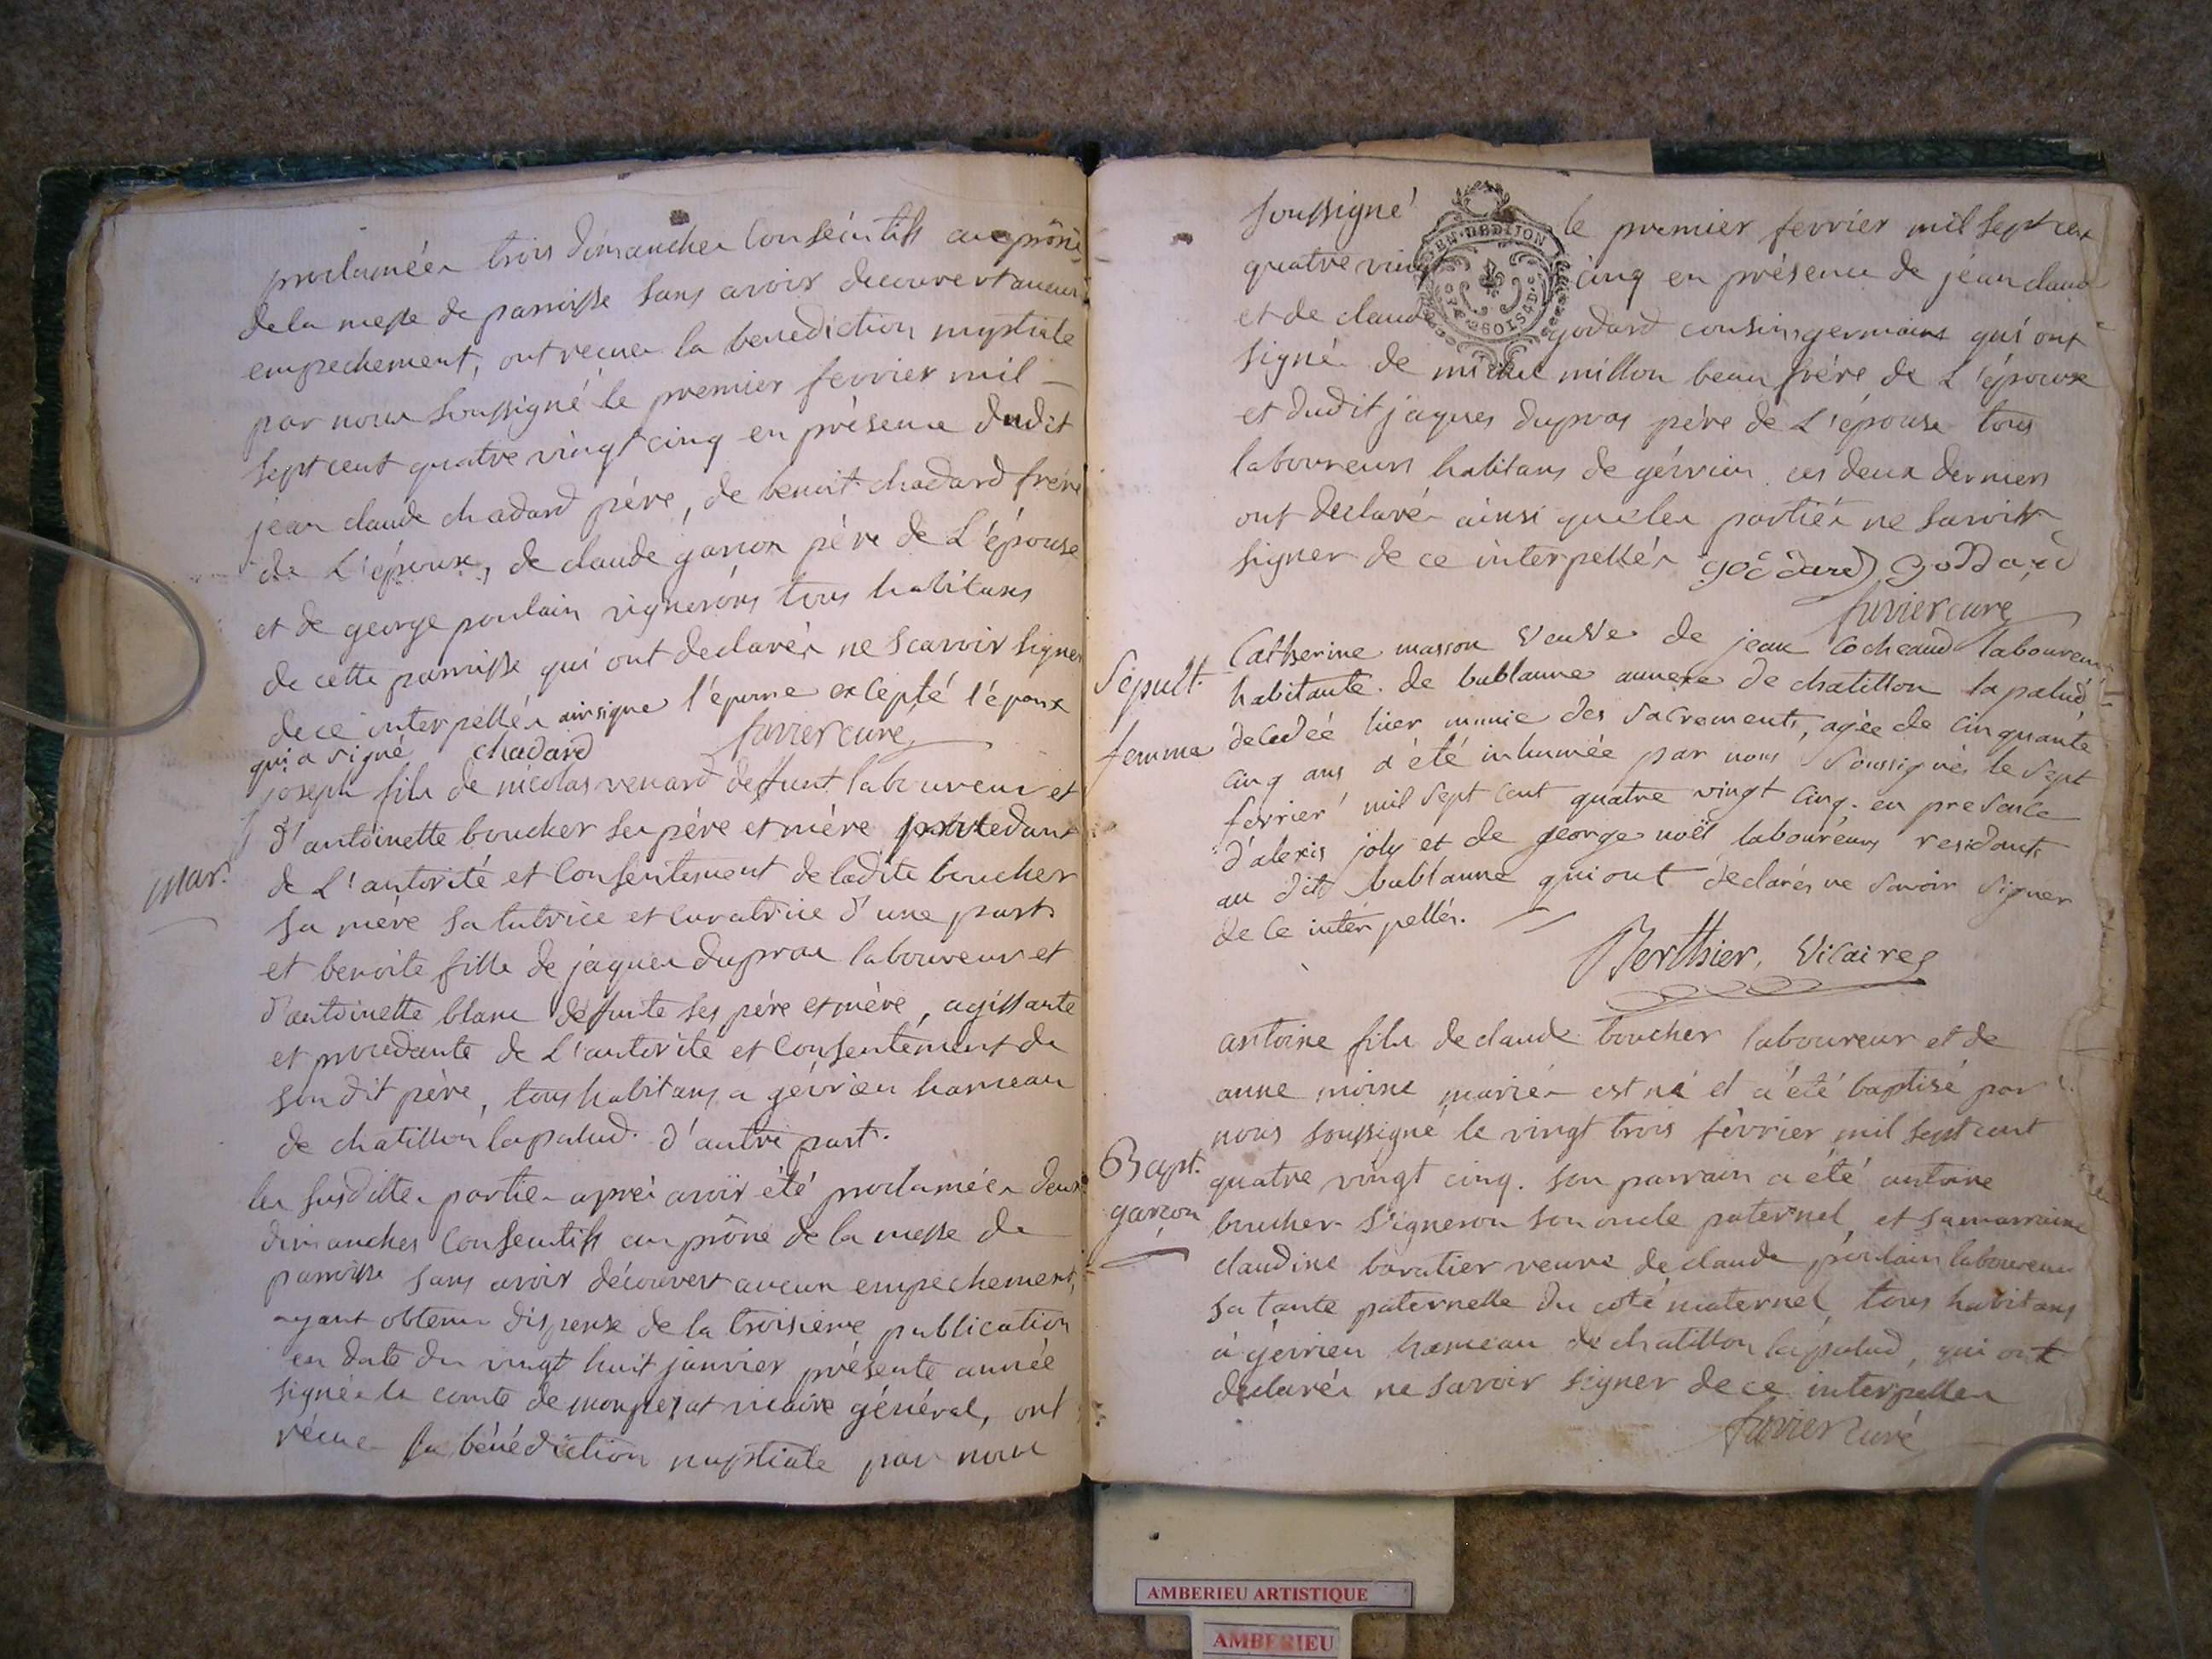 proclamées trois dimanches consécutifs au prône
de la messe de paroisse sans avoir decouvert aucun
empechement, ont recues la benediction nuptiale
par nous soussigné le premier fevrier mil
sept cent quatre vingt cinq en présence dudit
jean claude chadard père, de benoit chadard frère
de L'épouse, de claude père de L'épouse
et de george poulain vignerons tous habitans
de cette paroisse qui ont declarés ne scavoir signer
de ce interpellés l'epouse excepté l'époux
qui a signé chadard favier curé
joseph fils de nicolas renard deffunt laboureur et
d'antoinette boucher ses père et mère procedant
Mar.
de L'autorité et consentement de ladite boucher
sa mère sa tutrice et curatrice d'une part
et benoite fille de jaques dupras laboureur et
d'antoinette blanc deffunte ses père et mère, agissante
et procedante de L'autorité et consentement de
son dit père, tous habitans a gévrieu hameau
de chatillon lapalud. d'autre part.
les susdittes parties après avoir été proclamées deux
dimanches consecutifs au prône de la messe de
paroisse sans avoir découvert aucun empechement,
ayant obtenu dispense de la troisieme publication
en date du vingt huit janvier présente année
signée le comte de vicaire général, ont
récue la bénédiction nuptiale par nous
soussigné le premier fevrier mil sept cent
quatre vingt cinq en présence de jean claude
et de claude godard cousins germains qui ont
signés de michel millon beau frère de L'épouse
et dudit jaques dupras père de L'épouse tous
laboureurs habitans de gévrieu ces deux derniers
ont declarés ainsi que les parties ne savoir
signer de ce interpellés goddard goddard
favier curé
Sépult.
femme
Catherine masson veuve de jean cocheaud laboureur
habitante de bublanne annexe de chatillon la palud
decedée hier munie des sacrements, agée de cinquante
cinq ans a été inhumée par nous soussignés le sept
fevrier mil sept cent quatre vingt cinq. en presence
d'alexis joly et de george noël laboureurs residants
au dit bublanne qui ont declarés ne savoir signer
de ce interpellés.
Berthier, Vicaire
antoine fils de claude boucher laboureur et de
anne moine mariés est né et a été baptisé par
nous soussigné le vingt trois fevrier mil sept cent
Bapt.
garcon
quatre vingt cinq. son parrain a été antoine
boucher vigneron son oncle paternel, et sa marraine
claudine baratier veuve de claude poulain laboureur
sa tante paternelle du coté maternel, tous habitans
à gévrieu hameau de chatillon lapalud, qui ont
declarés ne savoir signer de ce interpellés
favier curé
AMBERIEU ARTISTIQUE
AMBERIEU